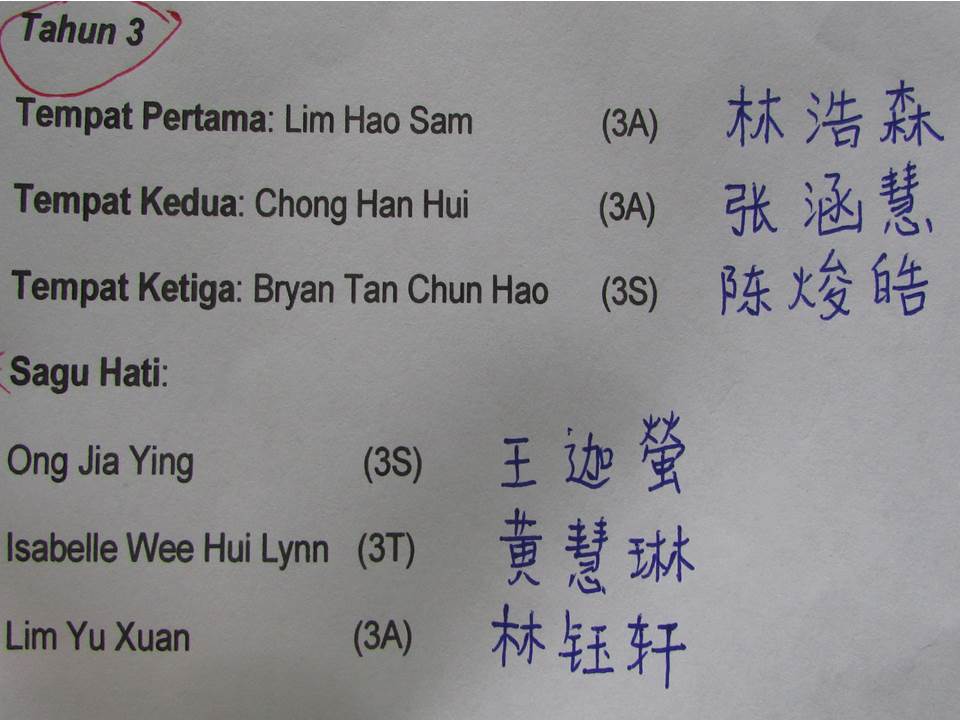 Tahun 3
Tempat Pertama: Lim Hao Sam (3A) 林浩森
Tempat Kedua: Chong Han Hui (3A) 张涵慧
Tempat Ketiga: Bryan Tan Chun Hao (3S) 陈焌皓
Sagu Hati:
Ong Jia Ying (3S) 王迦螢
Isabelle Wee Hui Lynn (3T) 黄慧琳
Lim Yu Xuan (3A) 林钰轩